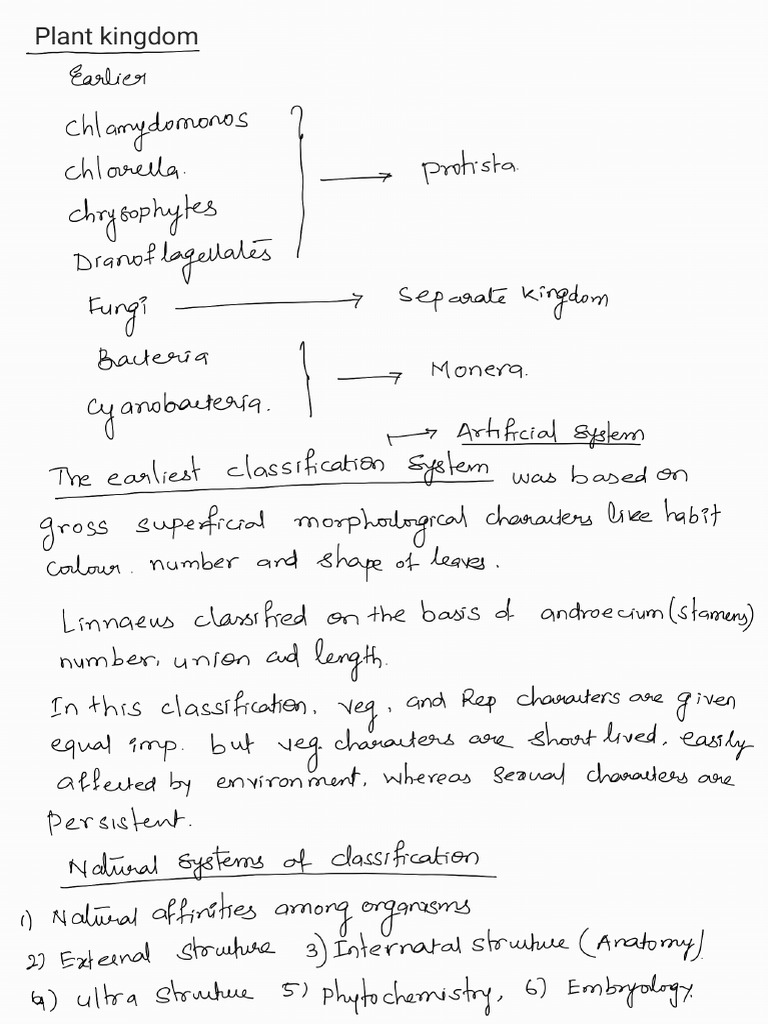 Plant kingdom
Earlier
Chlamydomonos
chlorella.
chrysophytes
Dianoflagellates
} → protista.
Fungi → separate kingdom
Bacteria
cyanobacteria.
} → Monera.
↦ Artificial system
The earliest classification system was based on
gross superficial morphodlogical characters like habit
colour. number and shape of leaves.
Linnaeus classified on the basis of androecium (stamens)
number, union and length.
In this classification, veg, and Rep characters are given
equal imp. but veg. characters are short lived, easily
affected by environment, whereas sexual characters are
persistent.
Natural systems of classification
1) Natural affinities among organisms
2) External structure 3) Internatal structure (Anatomy)
4) ultra structure 5) phytochemistry, 6) Embryology.